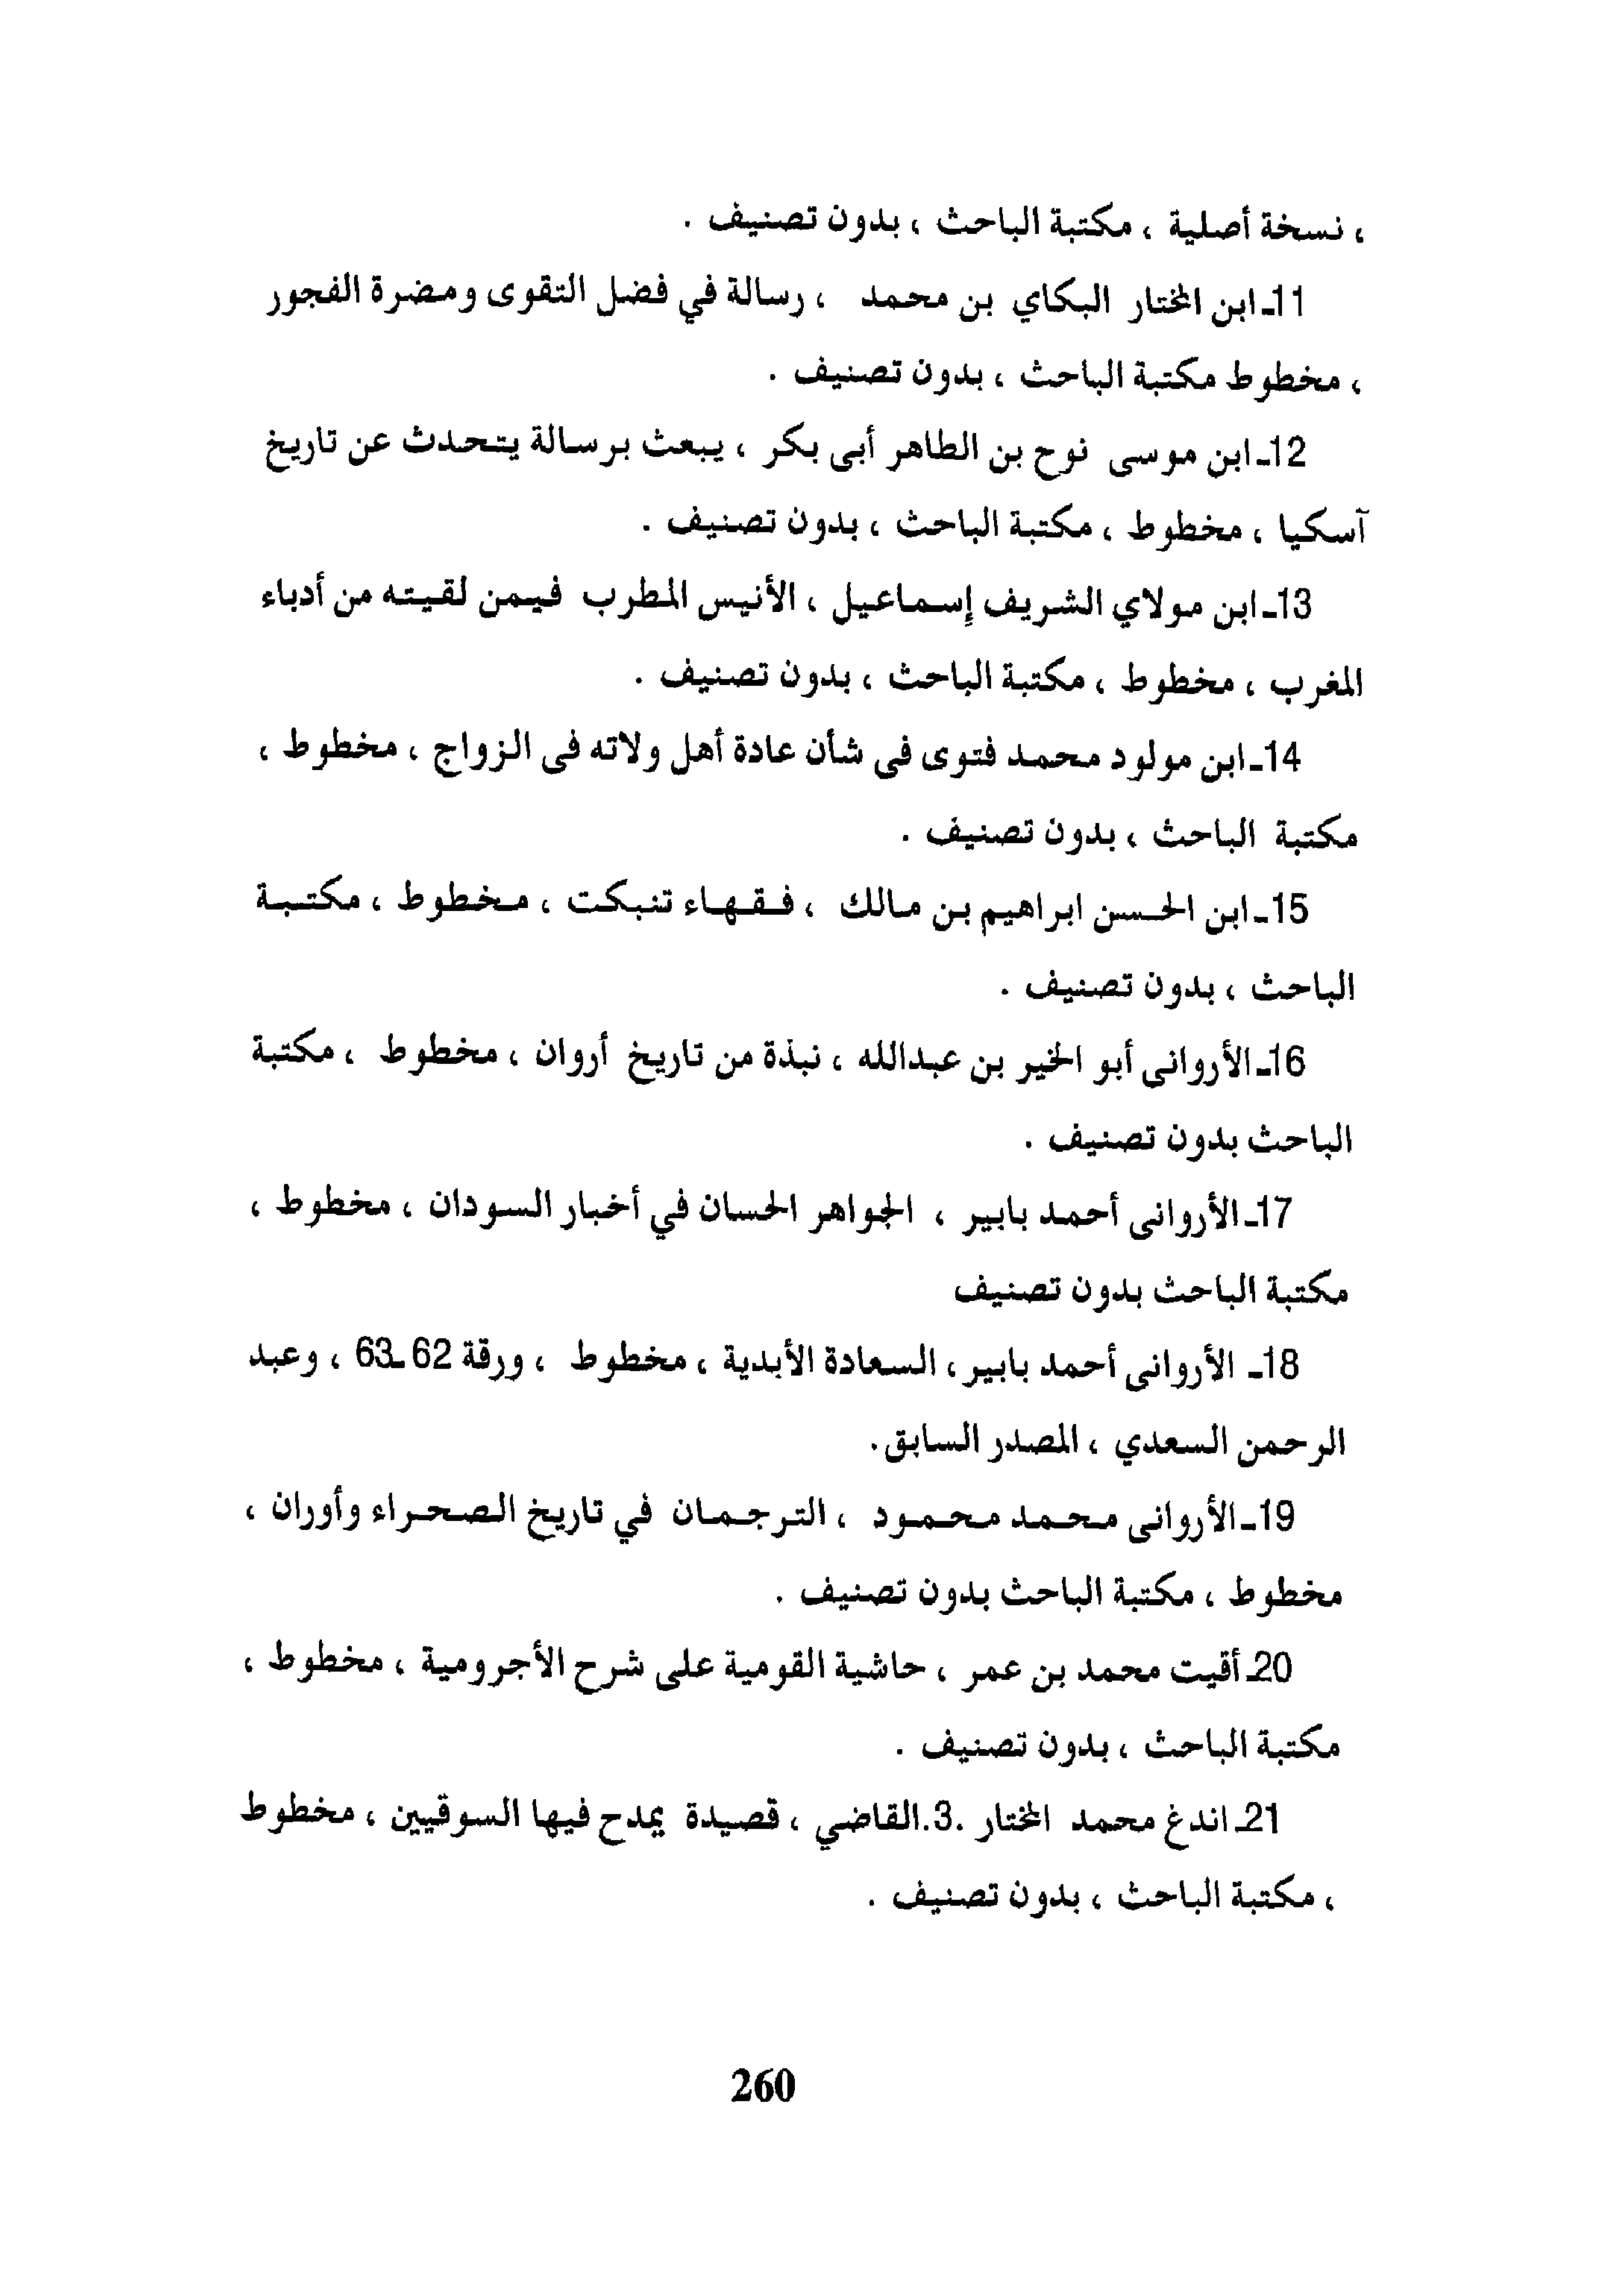 ، نسخة أصلية ، مكتبة الباحث ، بدون تصنيف .
11ـ ابن المختار البكاي بن محمد ، رسالة في فضل التقوى ومضرة الفجور
، مخطوط مكتبة الباحث ، بدون تصنيف .
12ـ ابن موسى نوح بن الطاهر أبى بكر ، يبعث برسالة يتحدث عن تاريخ
آسكيا ، مخطوط ، مكتبة الباحث ، بدون تصنيف .
13ـ ابن مولاي الشريف إسماعيل ، الأنيس المطرب فيمن لقيته من أدباء
المغرب ، مخطوط ، مكتبة الباحث ، بدون تصنيف .
14ـ ابن مولود محمد فتوى فى شأن عادة أهل ولاته فى الزواج ، مخطوط ،
مكتبة الباحث ، بدون تصنيف .
15ـ ابن الحسن ابراهيم بن مالك ، فقهاء تنبكت ، مخطوط ، مكتبة
الباحث ، بدون تصنيف .
16ـ الأروانى أبو الخير بن عبدالله ، نبذة من تاريخ أروان ، مخطوط ، مكتبة
الباحث بدون تصنيف .
17ـ الأروانى أحمد بابير ، الجواهر الحسان في أخبار السودان ، مخطوط ،
مكتبة الباحث بدون تصنيف
18ـ الأروانى أحمد بابير ، السعادة الأبدية ، مخطوط ، ورقة 62ـ63 ، وعبد
الرحمن السعدي ، المصدر السابق.
19ـ الأروانى محمد محمود ، الترجمان في تاريخ الصحراء وأوران ،
مخطوط ، مكتبة الباحث بدون تصنيف .
20ـ أقيت محمد بن عمر ، حاشية القومية على شرح الأجرومية ، مخطوط ،
مكتبة الباحث ، بدون تصنيف .
21ـ اندغ محمد المختار .3.القاضي ، قصيدة يمدح فيها السوقيين ، مخطوط
، مكتبة الباحث ، بدون تصنيف .
260